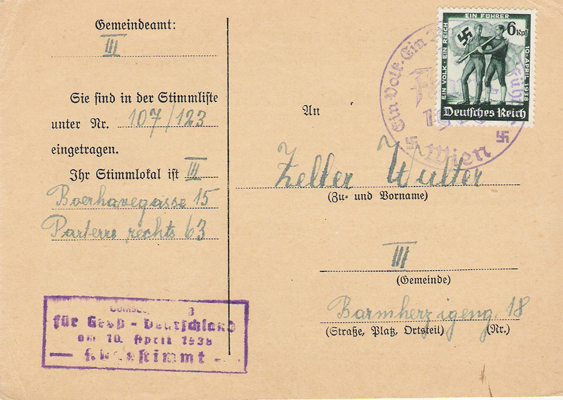 Gemeindeamt:
III
Sie sind in der Stimmliste
unter Nr. 107/123
eingetragen.
Ihr Stimmlokal ist III
Boerhavegasse 15
Parterre rechts 63
für Groß-Deutschland
am 10. April 1938
An
Zeller Walter
(Zu- und Vorname)
III
(Gemeinde)
Barmherzigeng. 18
(Straße, Platz, Ortsteil) (Nr.)
Ein Volk. Ein
Wien
EIN FÜHRER
6 Rpf
EIN VOLK EIN REICH
10. APRIL 1938
Deutsches Reich